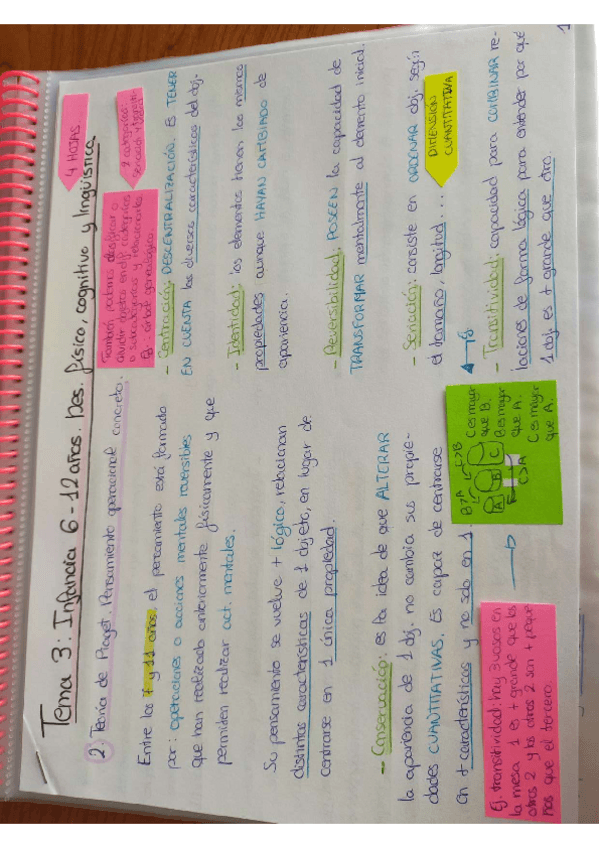 4 HOJAS
Tema 3: Infancia 6-12 años. Des. físico, cognitivo y lingüística
2. Teoría de Piaget. Pensamiento operacional concreto.
También podemos
dividir objetos en
o subcategorías y relacionarlas
Ej: árbol genealógico.
2 categorías:
Entre los 7 y 11 años, el pensamiento está formado
por: operaciones o acciones mentales reversibles
que han realizado anteriormente físicamente y que
permiten realizar act. mentales.
Su pensamiento se vuelve + lógico, relacionan
distintas características de 1 objeto, en lugar de
centrarse en 1 única propiedad.
- Conservación: es la idea de que ALTERAR
la apariencia de 1 obj. no cambia sus propie-
dades CUANTITATIVAS. Es capaz de centrarse
en + características y no solo en 1.
Ej. transitividad: hay 3 vasos en
la mesa 1 es + grande que los
otros 2 y los otros 2 son + peque
ños que el tercero.
- Centración: DESCENTRALIZACIÓN. Es TENER
EN CUENTA las diversas características del obj.
- Identidad: los elementos tienen las mismas
propiedades aunque HAYAN CAMBIADO de
apariencia.
- Reversibilidad: POSEEN la capacidad de
TRANSFORMAR mentalmente al elemento inicial.
- Seriación: consiste en ORDENAR obj. según
el tamaño, longitud...
DIMENSIÓN
CUANTITATIVA
- Transitividad: capacidad para COMBINAR re-
laciones de forma lógica para entender por qué
1 obj. es + grande que otro.
B>A C>B
A B C
C>A
C es mayor
que B.
B es mayor
que A.
C es mayor
que A.
1